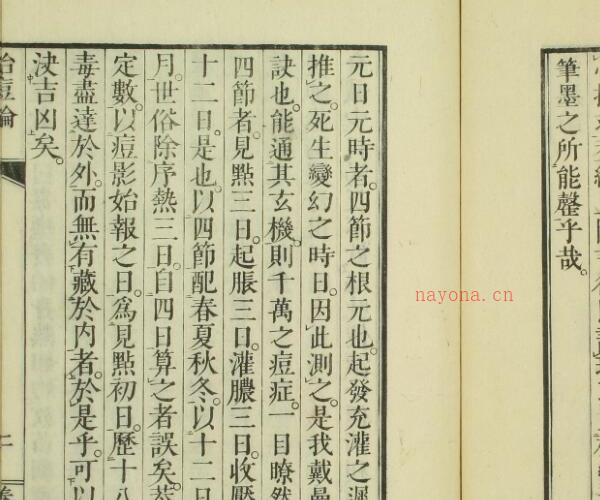 筆墨之所能罄乎哉
元日元時者四節之根元也起發充灌之遲
推之死生變幻之時日因此測之是我戴曼
訣也能通其玄機則千萬之痘症一目瞭然
四節者見點三日起脹三日灌膿三日收靨
十二日是也以四節配春夏秋冬以十二日
月世俗除序熱三日自四日算之者誤矣
定數以痘影始報之日爲見點初日歷十八
毒盡達於外而無有藏於内者於是乎可以
決吉凶矣
治痘論
nayona.cn